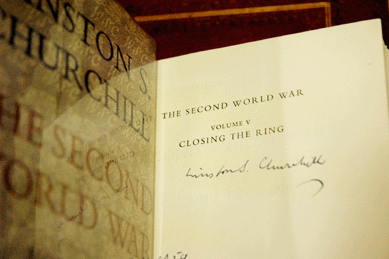 WINSTON S.
CHURCHILL
THE SECOND
WORLD WAR
THE SECOND WORLD WAR
VOLUME V
CLOSING THE RING
Winston S. Churchill